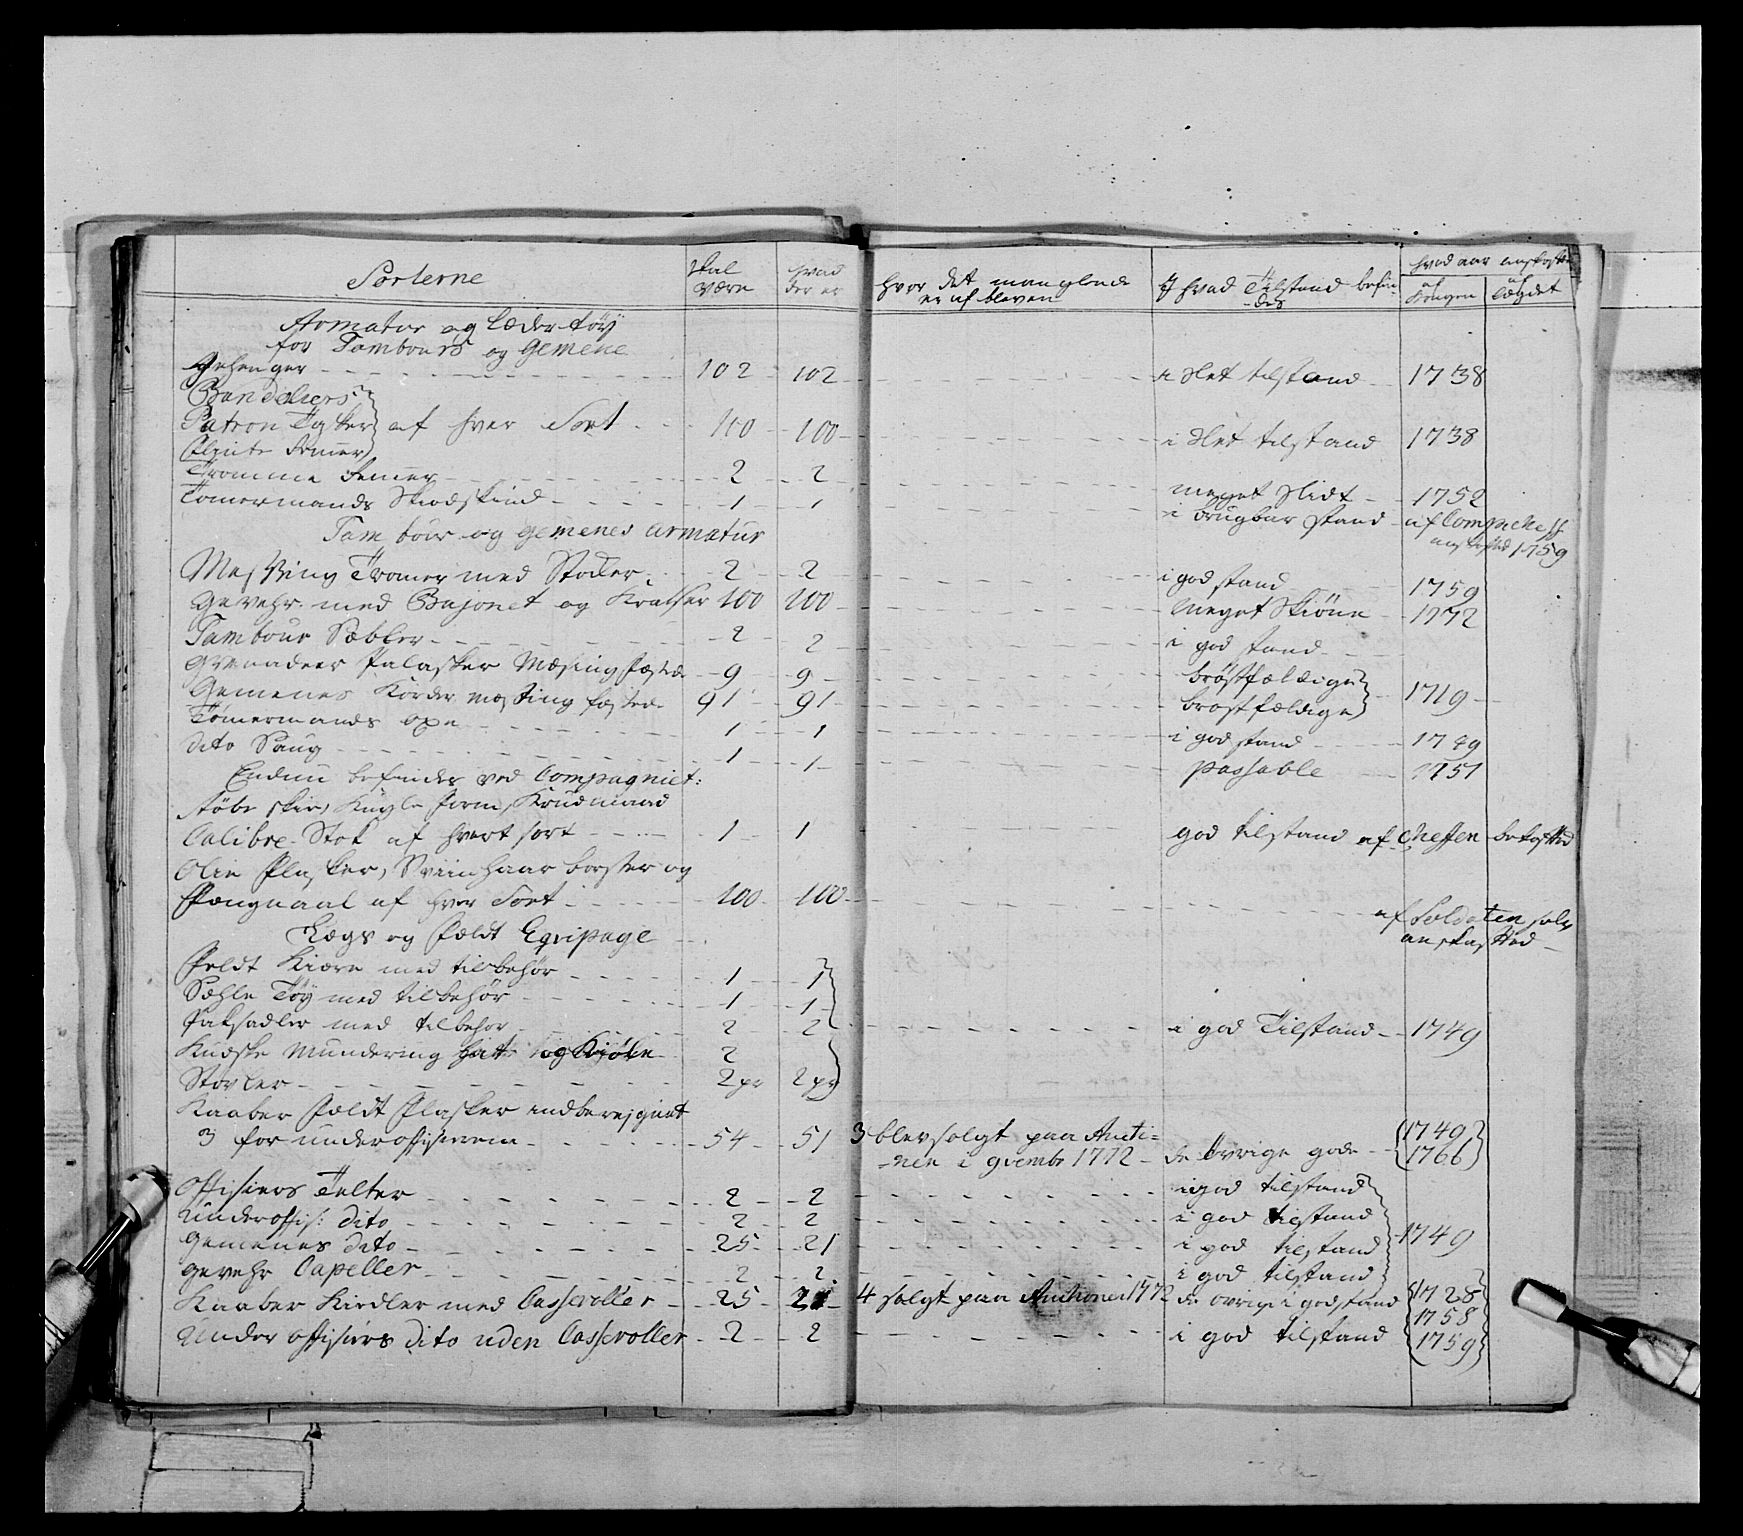 Sorterne skal være hvad der er hvor det manglende er af bleven I hvad Tilstand befindes hvad aar anskaffet af Kongen af Lægdet
Armatur og Læder tøy
for Tambours og Gemene
Gehenger 102 102 i slet tilstand 1738
Bandeliers
Patron Tasker af hver Sort 100 100 i slet tilstand 1738
Flinte Remer
Tromme Remer 2 2 meget slidt 1752
Tømermands Skiødskind 1 1 i brugbar stand af Comp: Cheff anskaffed 1759
Tambour og gemenes armatur
Messing Tromer med Stokker 2 2 i god stand 1759
Gevehr med Bajonet og Kratser 100 100 meget skiöne 1772
Tambour Sabler 2 2 i god stand
Grenadeer Palasker Mæsing fæsted 9 9 bröstfældige
Gemenes Körder messing fæsted 91 91 bröstfældige 1719
Tømermands oxe 1 1 i god stand 1749
dito Saug 1 1 passable 1751
Endnu befindes ved Compagniet:
støbe skee, Kugle form, Krudmaad
Calibre Stok af hvert sort 1 1 god tilstand af Cheffen bekosted
Olie Flasker, Sviinhaar borster og
Fængnaal af hver Sort 100 100 af Soldaten selv anskaffed
Lægs og Fældt Eqvipage
Feldt Kiære med tilbehör 1 1
Sæhle Töy med tilbehör 1 1
Paksadler med tilbehör 2 2 i god Tilstand 1749
Kudske Mundering hat og Kjole 2
Støvler 2 pr 2 pr
Kaaber Fældt Flasker indberejgnet
3 for underofficererne 54 51 3 blev solgt paa Auctionen i 9vembr 1772 de övrige gode 1749 1766
Officiers Telter 2 2 i god tilstand
Underoffis: dito 2 2 i god tilstand
Gemenes dito 25 21 i god tilstand 1749
Gevehr Capeller 2 2 i god tilstand
Kaaber Kiedler med Casseroller 25 21 4 solgt paa Auctionen 1772 de övrige i god stand 1728 1758
Under officiers dito uden Casseroller 2 2 i god tilstand 1759